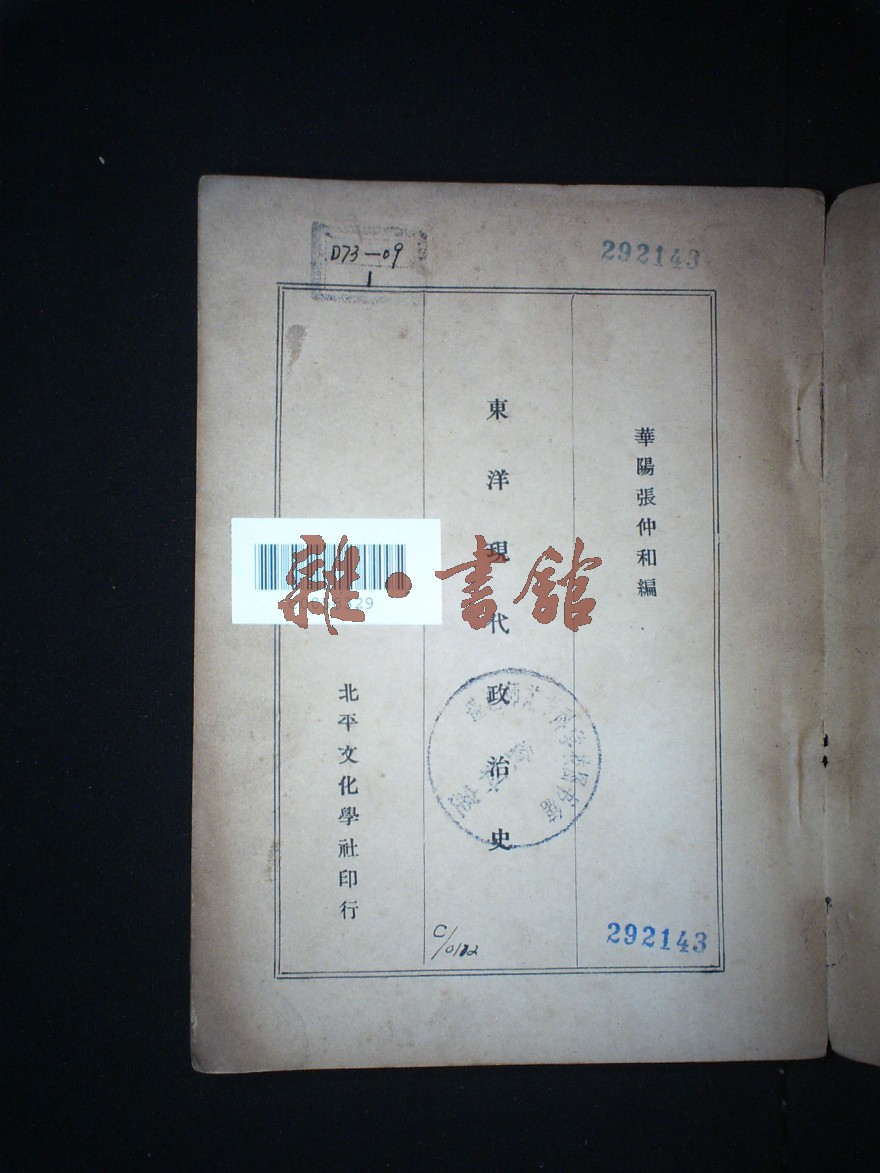 D73—09
1
292143
華陽張仲和編
東洋現代政治史
北平文化學社印行
雜·書館
C/0122
292143